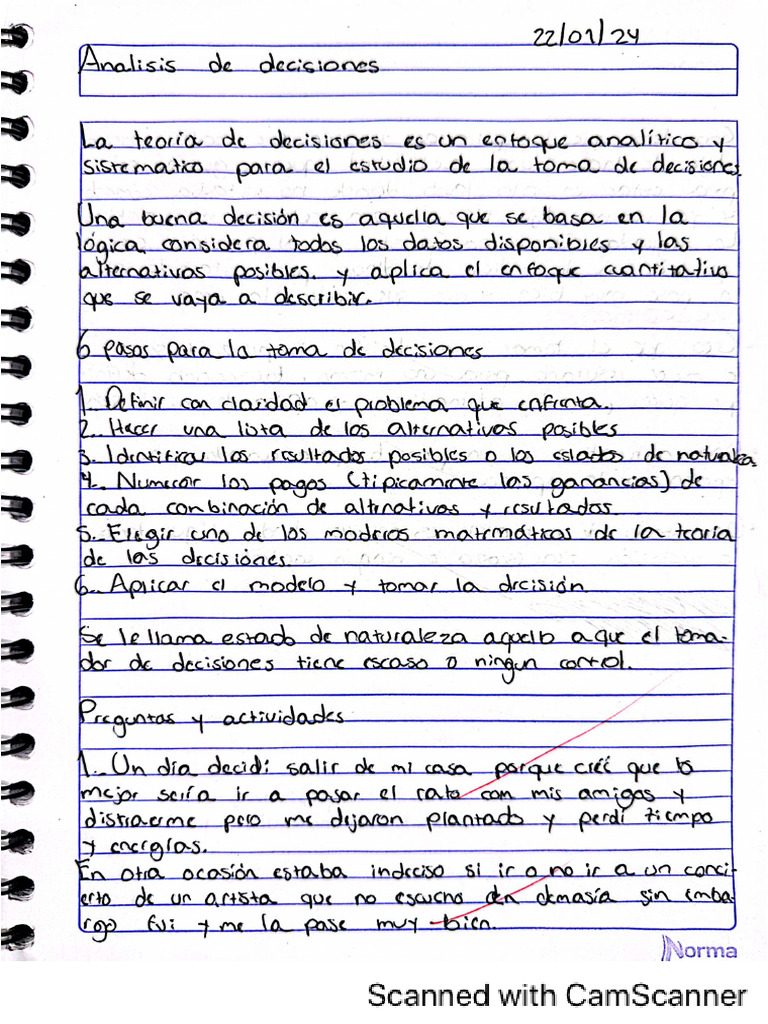 22/01/24
Analisis de decisiones
La teoría de decisiones es un enfoque analítico y
sistematico para el estudio de la toma de decisiones.
Una buena decisión es aquella que se basa en la
lógica, considera todos los datos disponibles y las
alternativas posibles. y aplica el enfoque cuantitativo
que se vaya a describir.
6 pasos para la toma de decisiones
1.. Definir con claridad el problema que enfrenta.
2.. Hacer una lista de los alternativas posibles
3.. Identificar los resultados posibles o los estados de naturaleza
4.. Numerar los pagos (tipicamente las ganancias) de
cada combinación de altrnativas y resultados.
5.. Elegir uno de los modelos matemáticos de la teoría
de las decisiones.
6.. Aplicar el modelo y tomar la decisión.
Se le llama estado de naturaleza aquello a que el toma-
dor de decisiones tiene escaso o ningun control.
Preguntas y actividades
1.. Un día decidí salir de mi casa porque creé que lo
mejor sería ir a pasar el rato con mis amigos y
distraerme pero me dejaron plantado y perdí tiempo
y energías.
En otra ocasión estaba indeciso si ir o no ir a un conci-
erto de un artista que no escucho en demasía sin emba-
rgo fui y me la pase muy bien.
Norma
Scanned with CamScanner